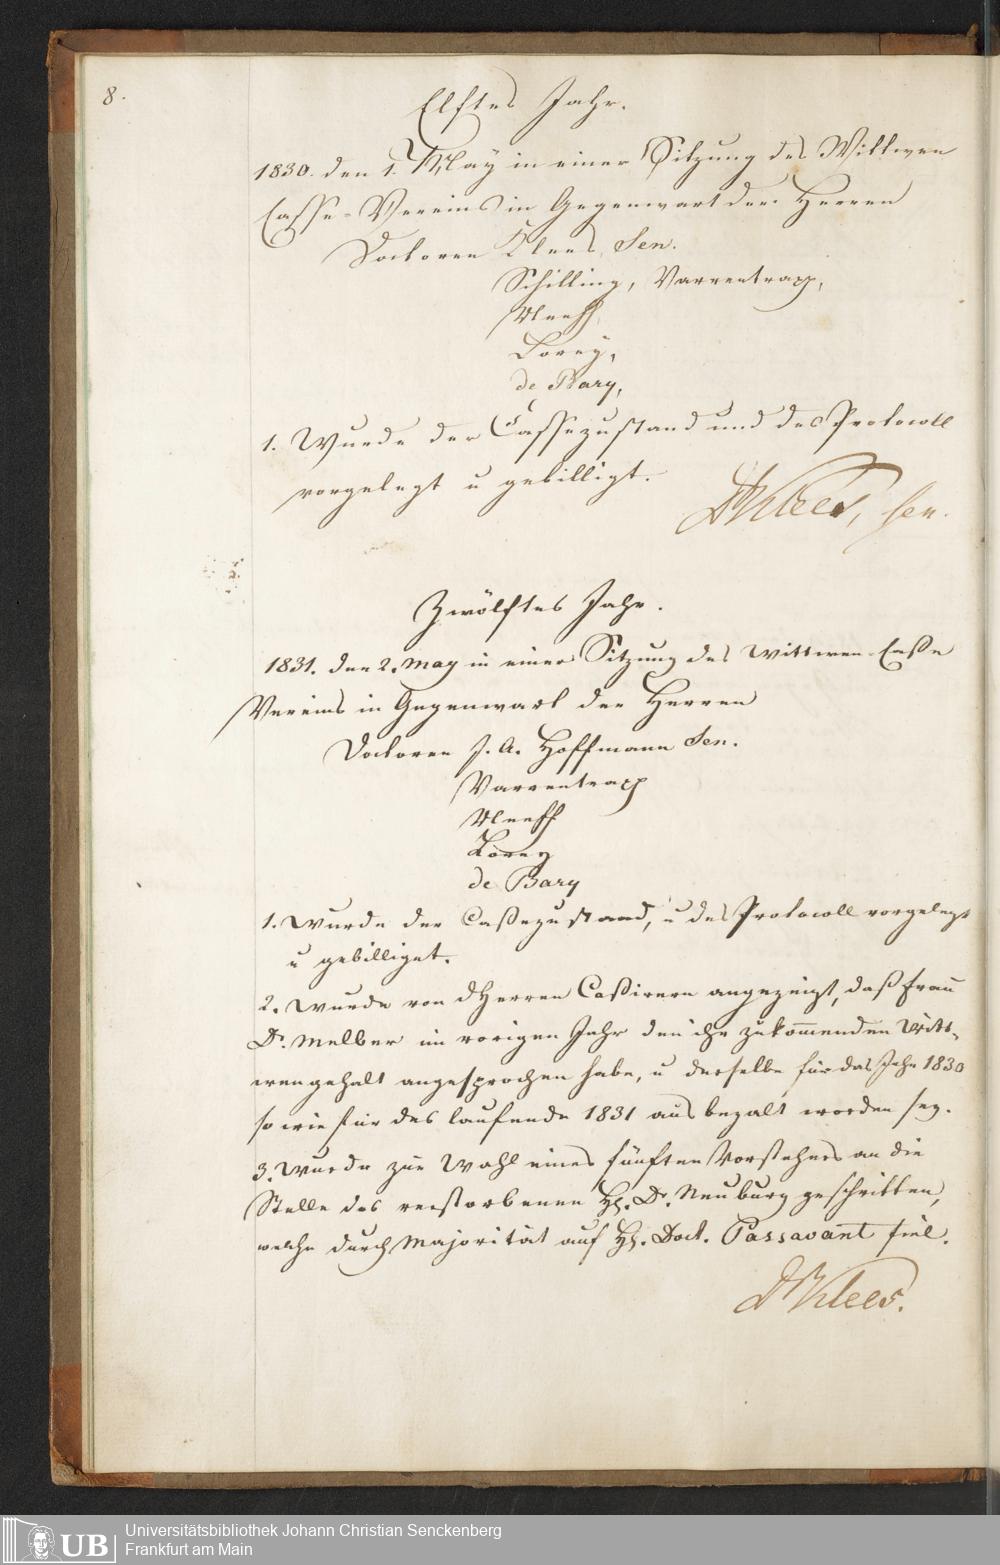 8.
Elftes Jahr.
1830. den 1. May in einer Sitzung des Wittwen
Casse-Vereins in Gegenwart der Herren
Doctoren Klees, Sen.
Schilling, Varrentrapp,
Neeff
Lorey,
de Bary,
1. Wurde der Cassezustand und das Protocoll
vorgelegt u gebilligt.
Dr Klees, sen.
Zwölftes Jahr.
1831. den 2. May in einer Sitzung des Wittwen-Caße
Vereins in Gegenwart der Herren
Doctoren J. A. Hoffmann Sen.
Varrentrapp
Neeff
Lorey
de Bary
1. Wurde der Caßezustand, u das Protocoll vorgelegt
u gebilliget.
2. Wurde von dHerren Caßirern angezeigt, daß Frau
Dr. Melber im vorigen Jahr den ihr zukommenden Witt-
wengehalt angesprochen habe, u derselbe für das Jahr 1830
so wie für das laufende 1831 ausbezalt worden sey.
3. Wurde zur Wahl eines fünften Vorstehers an die
Stelle des verstorbenen Hh. Dr. Neuburg geschritten,
welche durch Majorität auf Hh. Doct. Passavant fiel.
Dr Klees.
UB
Universitätsbibliothek Johann Christian Senckenberg
Frankfurt am Main